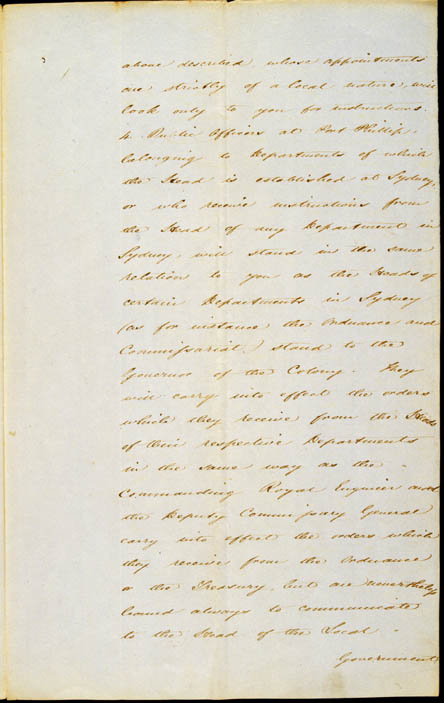 above described, whose appointments
are strictly of a local nature, will
look only to you for instructions.
4. Public Officers at Port Phillip,
belonging to Departments of which
the Head is established at Sydney,
or who receive instructions from
the Head of any Department in
Sydney, will stand in the same
relation to you as the Heads of
certain Departments in Sydney
(as for instance the Ordnance and
Commissariat) stand to the
Governor of the Colony. They
will carry into effect the orders
which they receive from the Heads
of their respective Departments
in the same way as the
Commanding Royal Engineer and
the Deputy Commissary General
carry into effect the orders which
they receive from the Ordnance
or the Treasury, but are nevertheless
bound always to communicate
to the Head of the Local
Government